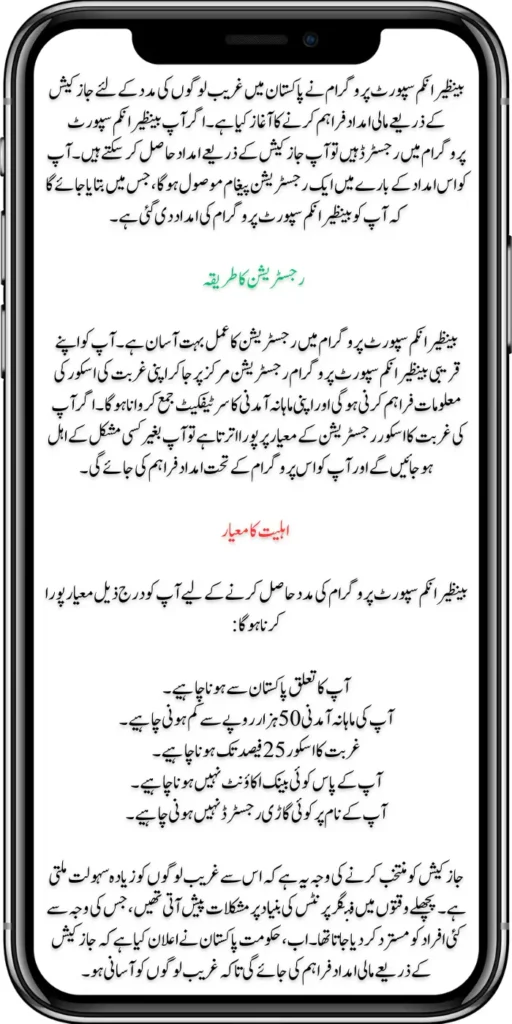 بینظیر انکم سپورٹ پروگرام نے پاکستان میں غریب لوگوں کی مدد کے لئے جاز کیش
کے ذریعے مالی امداد فراہم کرنے کا آغاز کیا ہے۔ اگر آپ بینظیر انکم سپورٹ
پروگرام میں رجسٹرڈ ہیں تو آپ جاز کیش کے ذریعے امداد حاصل کر سکتے ہیں۔ آپ
کو اس امداد کے بارے میں ایک رجسٹریشن پیغام موصول ہوگا، جس میں بتایا جائے گا
کہ آپ کو بینظیر انکم سپورٹ پروگرام کی امداد دی گئی ہے۔
رجسٹریشن کا طریقہ
بینظیر انکم سپورٹ پروگرام میں رجسٹریشن کا عمل بہت آسان ہے۔ آپ کو اپنے
قریبی بینظیر انکم سپورٹ پروگرام رجسٹریشن مرکز پر جا کر اپنی غربت کی اسکور کی
معلومات فراہم کرنی ہوگی اور اپنی ماہانہ آمدنی کا سرٹیفکیٹ جمع کروانا ہوگا۔ اگر آپ
کی غربت کا اسکور رجسٹریشن کے معیار پر پورا اترتا ہے تو آپ بغیر کسی مشکل کے اہل
ہو جائیں گے اور آپ کو اس پروگرام کے تحت امداد فراہم کی جائے گی۔
اہلیت کا معیار
بینظیر انکم سپورٹ پروگرام کی مدد حاصل کرنے کے لیے آپ کو درج ذیل معیار پورا
کرنا ہوگا:
آپ کا تعلق پاکستان سے ہونا چاہیے۔
آپ کی ماہانہ آمدنی 50 ہزار روپے سے کم ہونی چاہیے۔
غربت کا اسکور 25 فیصد تک ہونا چاہیے۔
آپ کے پاس کوئی بینک اکاؤنٹ نہیں ہونا چاہیے۔
آپ کے نام پر کوئی گاڑی رجسٹرڈ نہیں ہونی چاہیے۔
جاز کیش کو منتخب کرنے کی وجہ یہ ہے کہ اس سے غریب لوگوں کو زیادہ سہولت ملتی
ہے۔ پچھلے وقتوں میں فینگر پرنٹس کی بنیاد پر مشکلات پیش آتی تھیں، جس کی وجہ سے
کئی افراد کو مسترد کر دیا جاتا تھا۔ اب، حکومت پاکستان نے اعلان کیا ہے کہ جاز کیش
کے ذریعے مالی امداد فراہم کی جائے گی تاکہ غریب لوگوں کو آسانی ہو۔